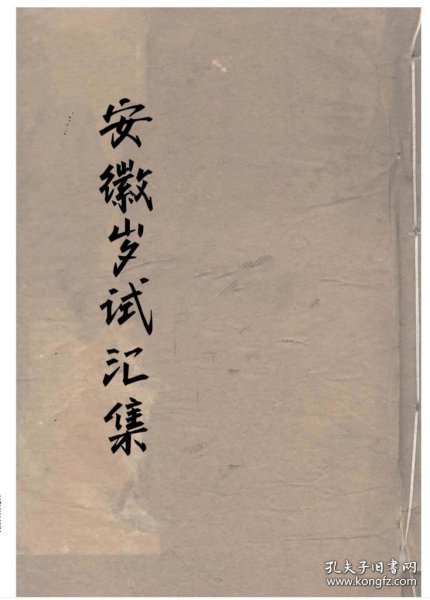 安徽岁试汇集
孔夫子旧书网
www.kongfz.com